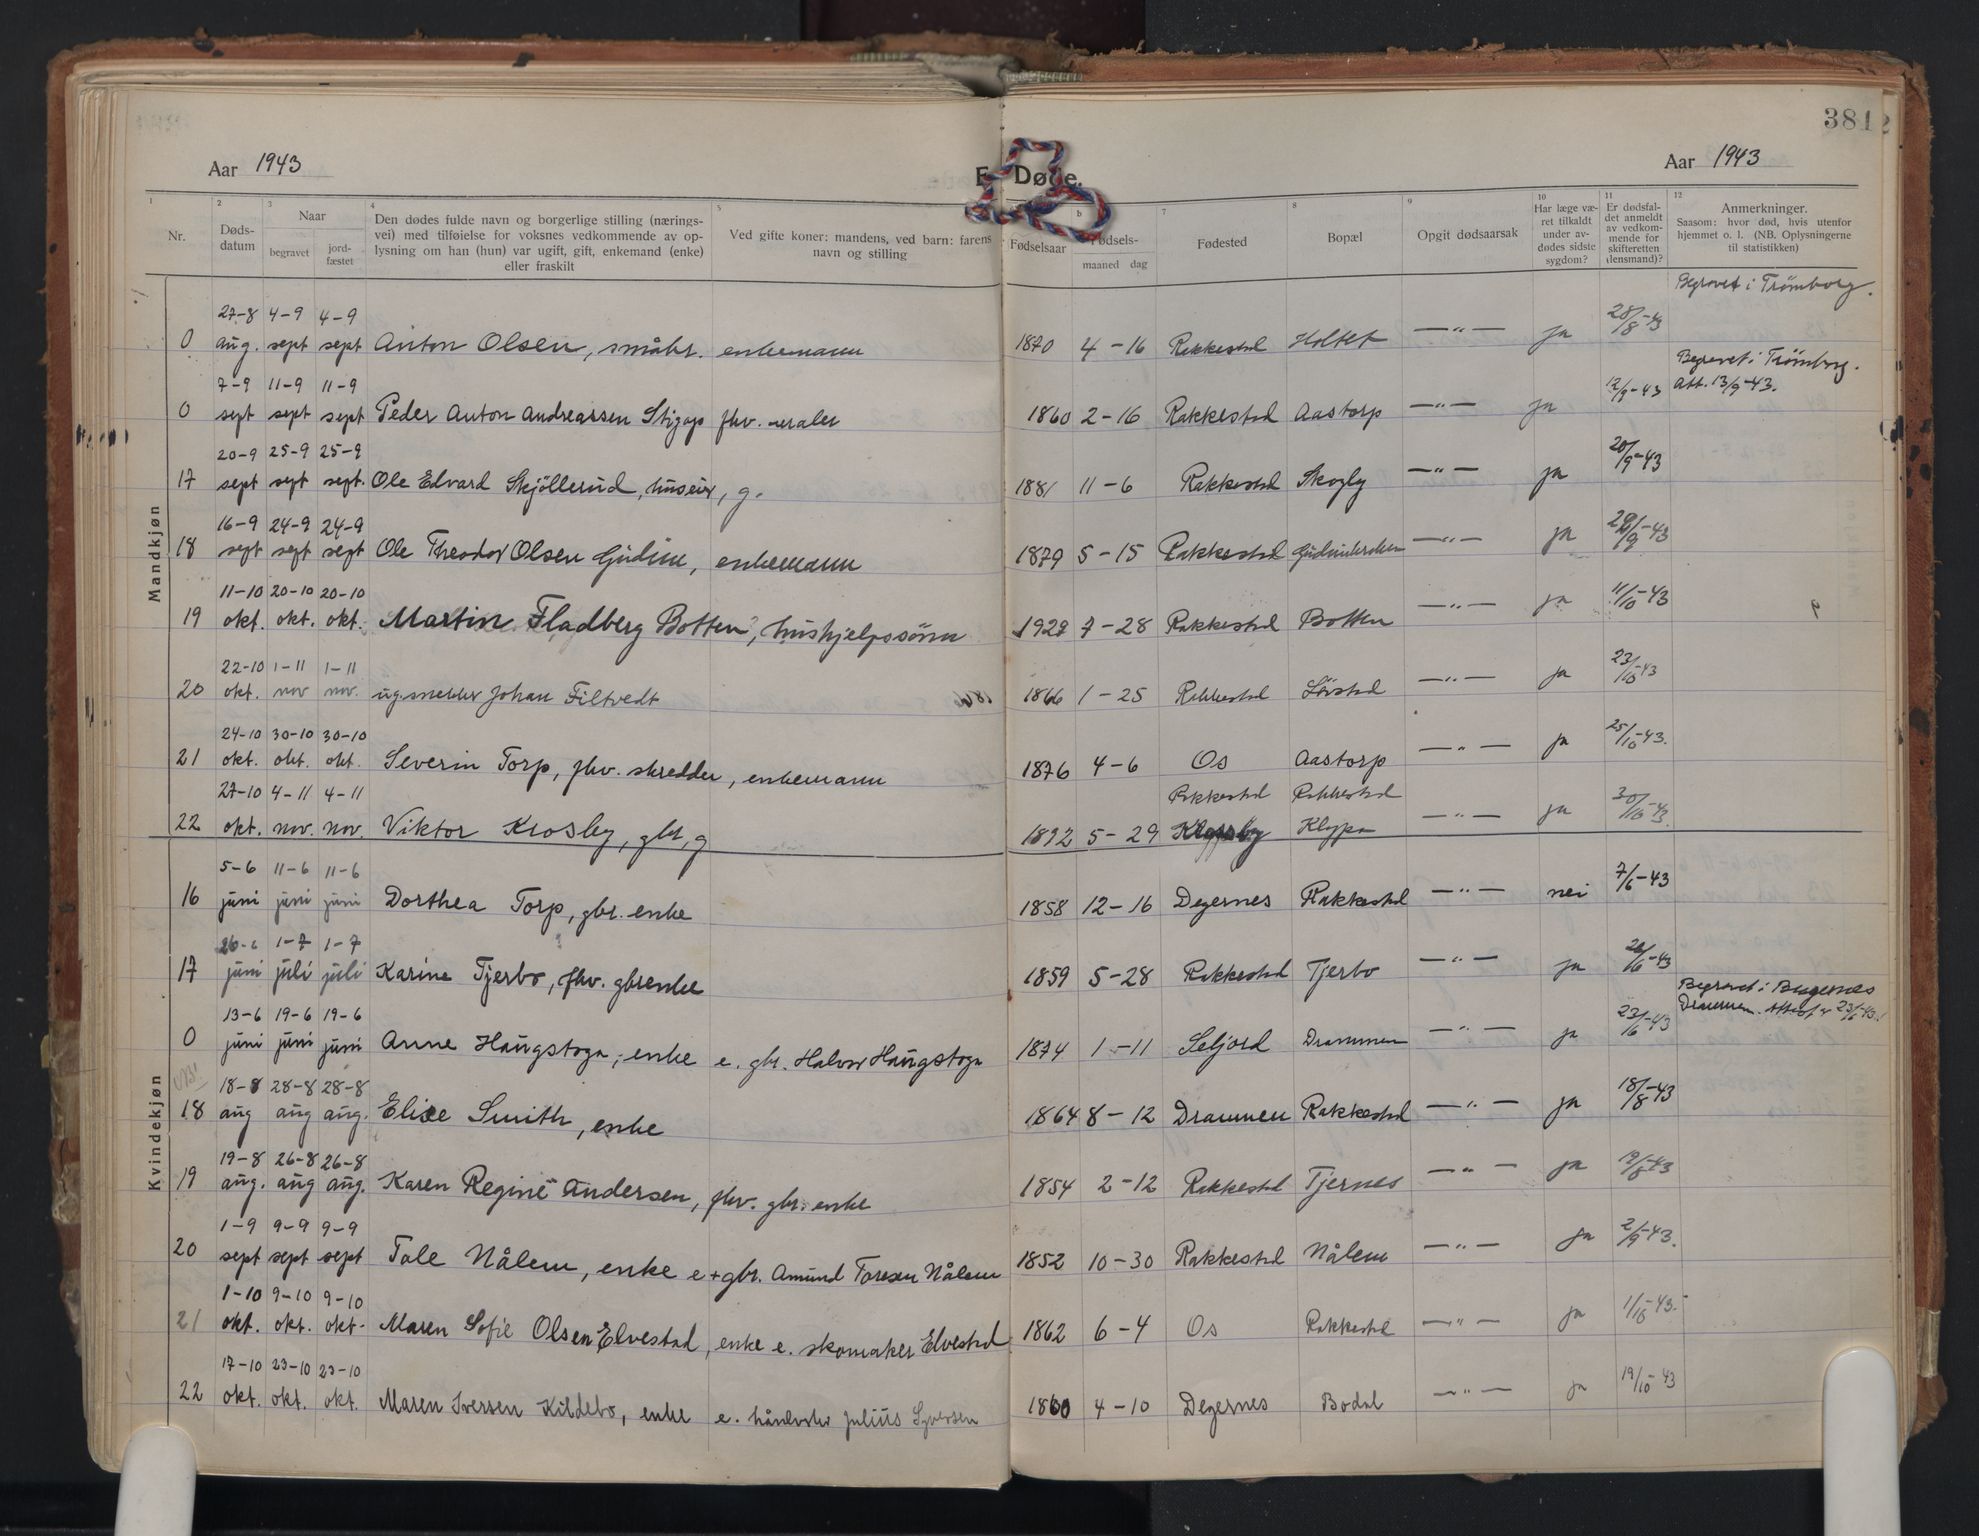 381
Aar 1943
E. Døde.
Aar 1943
1 2 3 4 5 b 7 8 9 10 11 12
Nr.
Døds-
datum
Naar
begravet
jord-
fæstet
Den dødes fulde navn og borgerlige stilling (nærings-
vei) med tilføielse for voksnes vedkommende av op-
lysning om han (hun) var ugift, gift, enkemand (enke)
eller fraskilt
Ved gifte koner: mandens, ved barn: farens
navn og stilling
Fødselsaar
Fødsels-
maaned dag
Fødested
Bopæl
Opgit dødsaarsak
Har læge væ-
ret tilkaldt
under av-
dødes sidste
sygdom?
Er dødsfal-
det anmeldt
av vedkom-
mende for
skifteretten
(lensmand)?
Anmerkninger.
Saasom: hvor død, hvis utenfor
hjemmet o. l. (NB. Oplysningerne
til statistikken)
Mandkjøn
27-8 4-9 4-9 28/8-43 Begravet i Trømborg.
0 aug. sept sept Anton Olsen, småbr. enkemann 1870 4-16 Rakkestad Holtet —"— ja
7-9 11-9 11-9 12/9-43 Begravet i Trømborg.
Att. 13/9-43.
0 sept sept sept Peder Anton Andreassen Stigap fhv. maler 1860 2-16 Rakkestad Aastorp —"— ja
20-9 25-9 25-9 20/9-43
17 sept sept sept. Ole Edvard Skjøllerud, huseier, g. 1881 11-6 Rakkestad Skogly —"— ja
16-9 24-9 24-9 /9-43
18 sept sept sept Ole Theodor Olsen Gudim, enkemann 1879 5-15 Rakkestad —"— ja
11-10 20-10 20-10 11/10-43
19 okt. okt. okt. Martin Fladberg Botten, hushjelpssønn 1927 7-28 Rakkestad Botten —"— ja
22-10 1-11 1-11 23/10-43
20 okt. nov nov. ug. snekker Johan Filtvedt 1866 1-25 Rakkestad Lövstad —"— ja
24-10 30-10 30-10 25/10-43.
21 okt. okt. okt. Severin Torp, fhv. skredder, enkemann 1876 4-6 Os Aastorp —"— ja
27-10 4-11 4-11 Rakkestad Rakkestad 30/10-43.
22 okt. nov. nov. Viktor Krosby, gbr, g 1892 5-29 Klypa —"— ja
Kvindekjøn
5-6 11-6 11-6 7/6-43
16 juni juni juni Dorthea Torp, gbr. enke 1858 12-16 Degernes Rakkestad —"— nei
26-6 1-7 1-7 26/6-43
17 juni juli juli Karine Tjerbo, fhv. gbrenke 1859 5-28 Rakkestad Tjerbo —"— ja
13-6 19-6 19-6 23/6-43 Begravet i Bragernes
Drammen. Attest 23/6-43.
0 juni juni juni Anne Haugstoga, enke e. gbr. Halvor Haugstoga 1874 1-11 Seljord Drammen —"— ja
18-8 28-8 28-8 18/8-43
18 aug aug aug. Elise Smith, enke 1864 8-12 Drammen Rakkestad —"— ja
19-8 26-8 26-8 19/8-43
19 aug. aug aug. Karen Regine Andersen, fhv. gbr. enke 1854 2-12 Rakkestad Tjernes —"— ja
1-9 9-9 9-9 2/9-43.
20 sept sept sept Tale Nålem, enke e + gbr. Amund Toresen Nålem 1852 10-30 Rakkestad Nålem —"— ja
1-10 9-10 9-10 1/10-43.
21 okt. okt. okt. Maren Sofie Olsen Elvestad, enke e. skomaker Elvestad 1862 6-4 Os Rakkestad —"— ja
17-10 23-10 23-10 19/10-43
22 okt. okt. okt. Maren Iversen Kildebo, enke e. Julius Syversen 1860 4-10 Degernes Bodal —"— ja